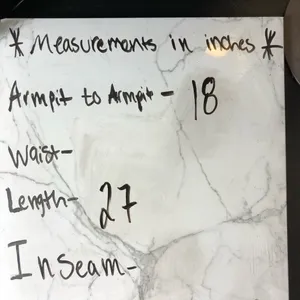 * Measurements in inches *
Armpit to Armpit - 18
Waist-
Length- 27
Inseam-